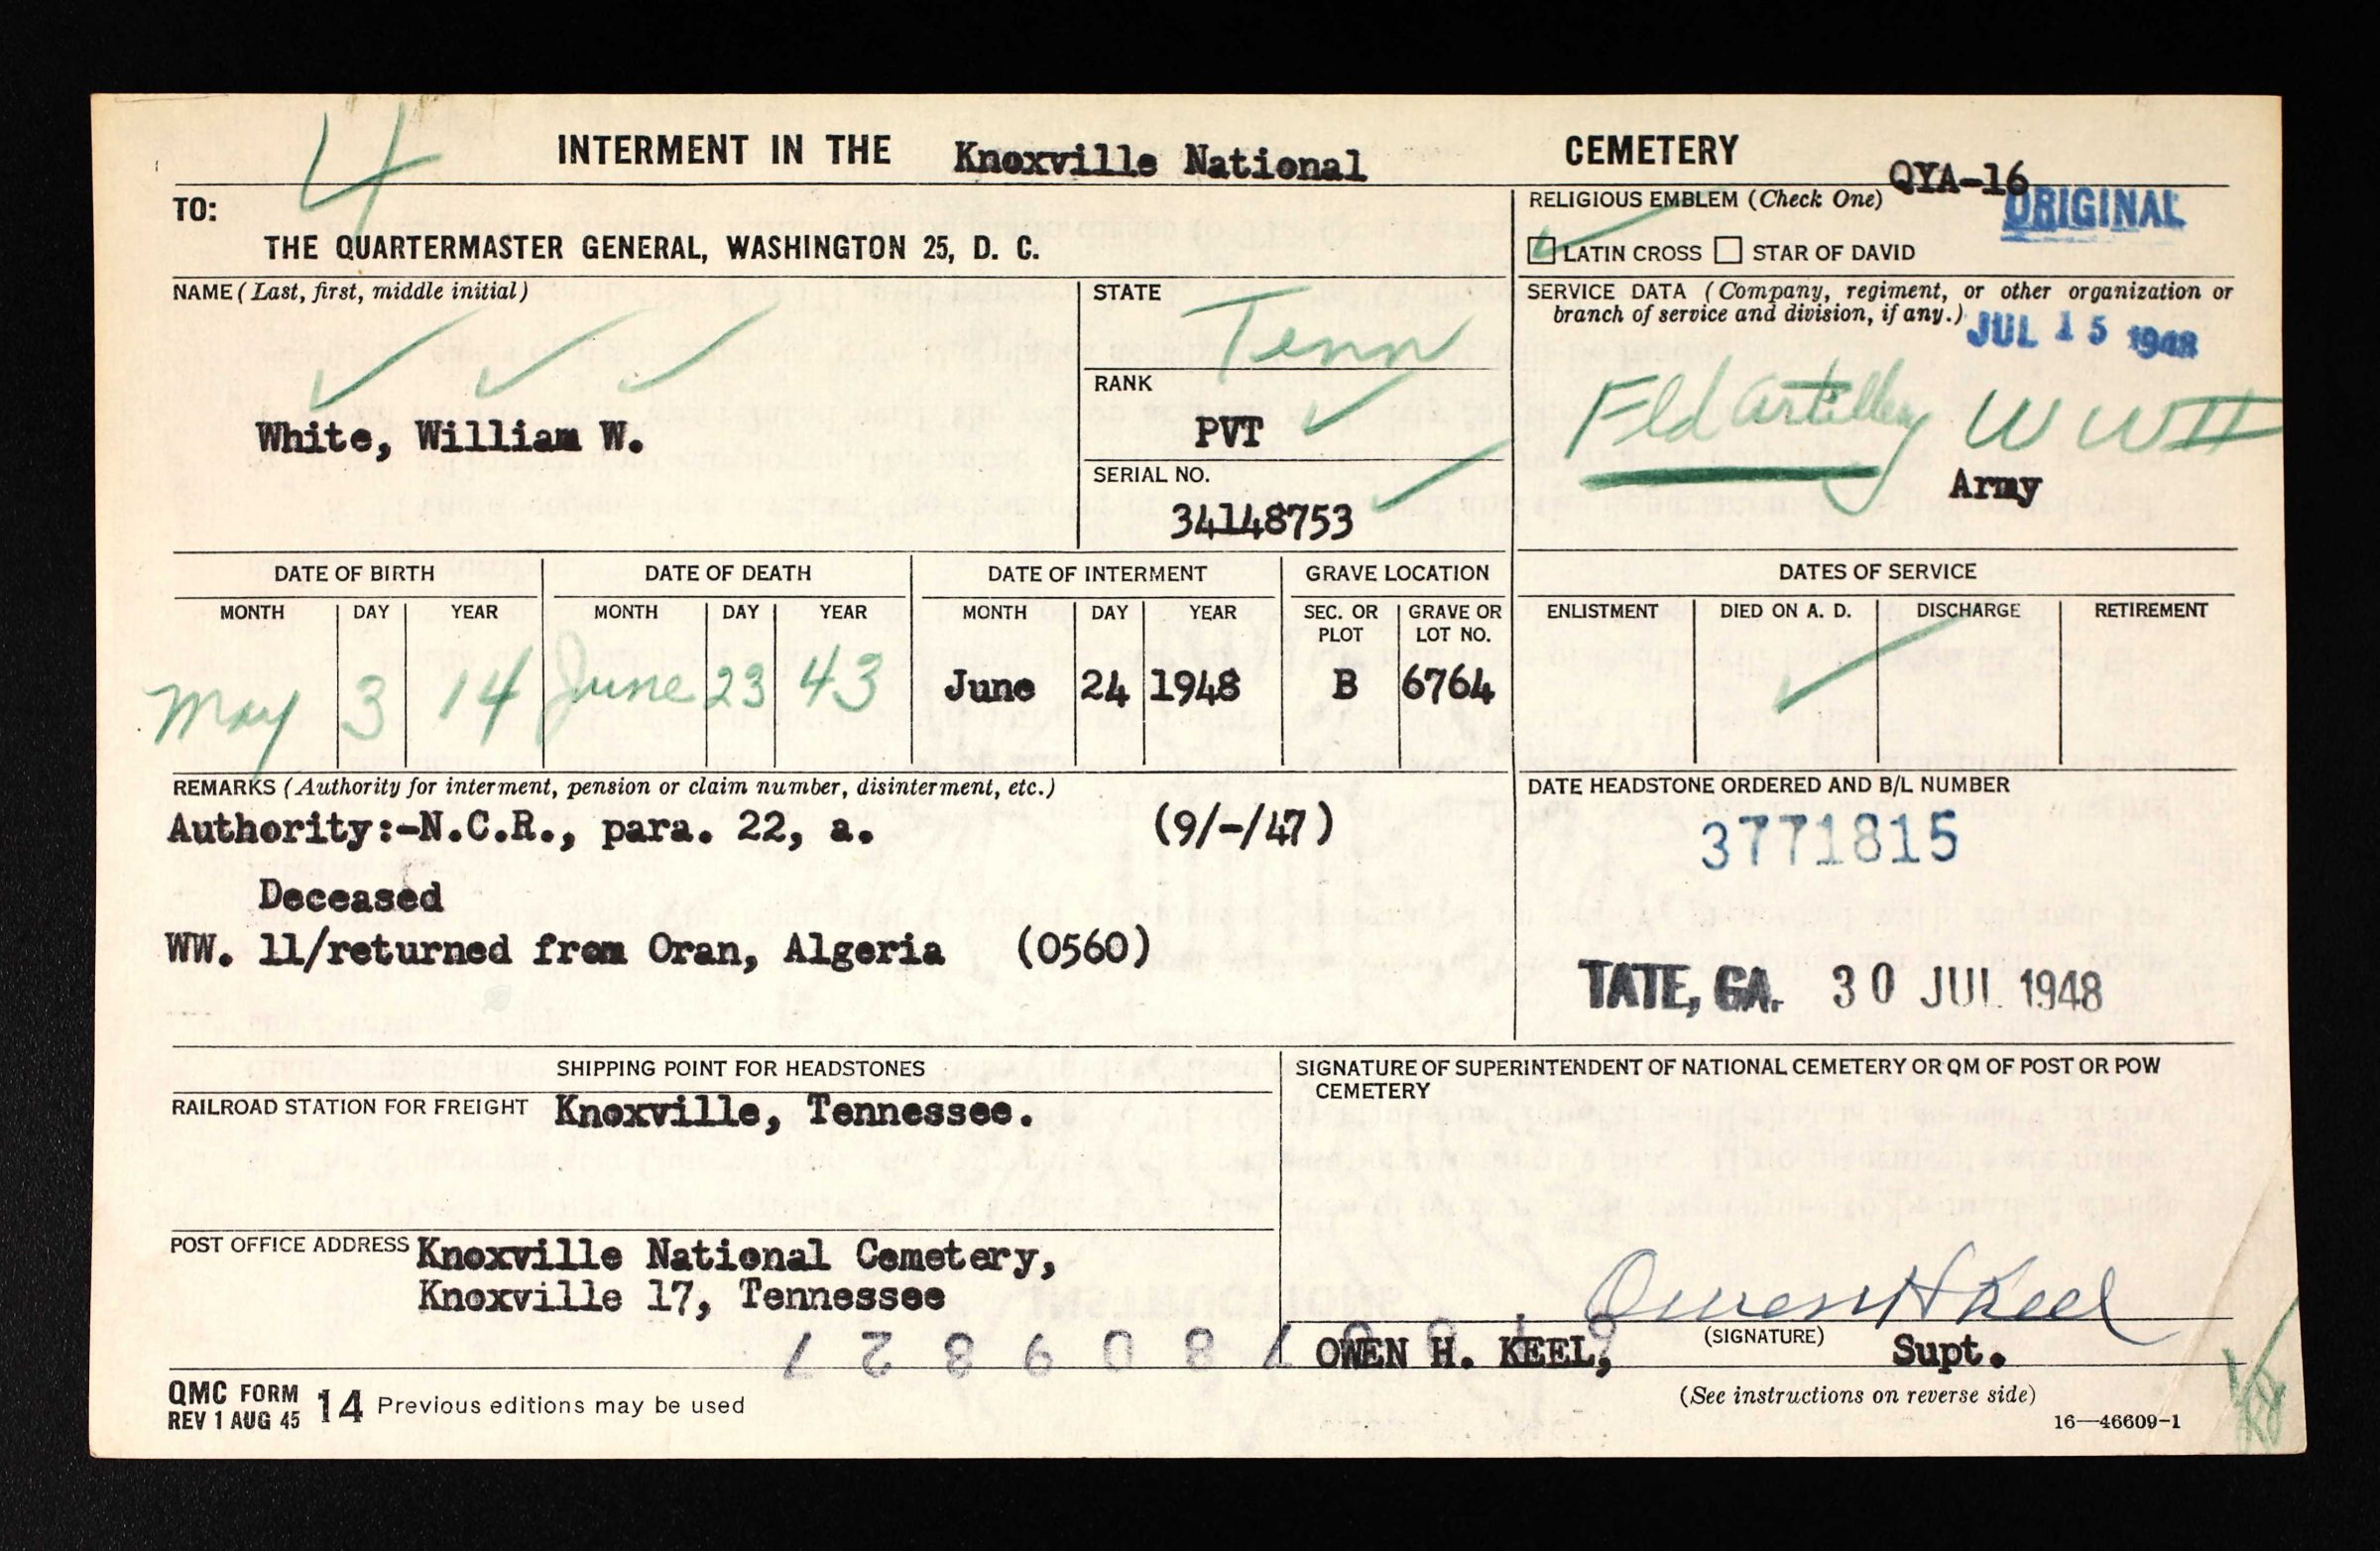 4
INTERMENT IN THE Knoxville National CEMETERY
QYA-16
ORIGINAL
TO:
THE QUARTERMASTER GENERAL, WASHINGTON 25, D. C.
RELIGIOUS EMBLEM (Check One)
LATIN CROSS STAR OF DAVID
NAME (Last, first, middle initial)
White, William W.
STATE
Tenn
RANK
PVT
SERIAL NO.
34148753
SERVICE DATA (Company, regiment, or other organization or
branch of service and division, if any.)
JUL 15 1948
Fld Artillery WWII
Army
DATE OF BIRTH DATE OF DEATH DATE OF INTERMENT GRAVE LOCATION DATES OF SERVICE
MONTH DAY YEAR MONTH DAY YEAR MONTH DAY YEAR SEC. OR PLOT GRAVE OR LOT NO. ENLISTMENT DIED ON A. D. DISCHARGE RETIREMENT
May 3 14 June 23 43 June 24 1948 B 6764
REMARKS (Authority for interment, pension or claim number, disinterment, etc.)
Authority:-N.C.R., para. 22, a. (9/-/47)
Deceased
WW. 11/returned from Oran, Algeria (0560)
DATE HEADSTONE ORDERED AND B/L NUMBER
3771815
TATE, GA. 30 JUL 1948
SHIPPING POINT FOR HEADSTONES
RAILROAD STATION FOR FREIGHT Knoxville, Tennessee.
POST OFFICE ADDRESS Knoxville National Cemetery,
Knoxville 17, Tennessee
SIGNATURE OF SUPERINTENDENT OF NATIONAL CEMETERY OR QM OF POST OR POW
CEMETERY
Owen H Keel
(SIGNATURE)
OWEN H. KEEL, Supt.
QMC FORM 14 Previous editions may be used
REV 1 AUG 45
(See instructions on reverse side)
16—46609-1